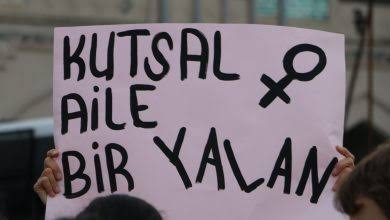 KUTSAL
AiLE
BiR YALAN